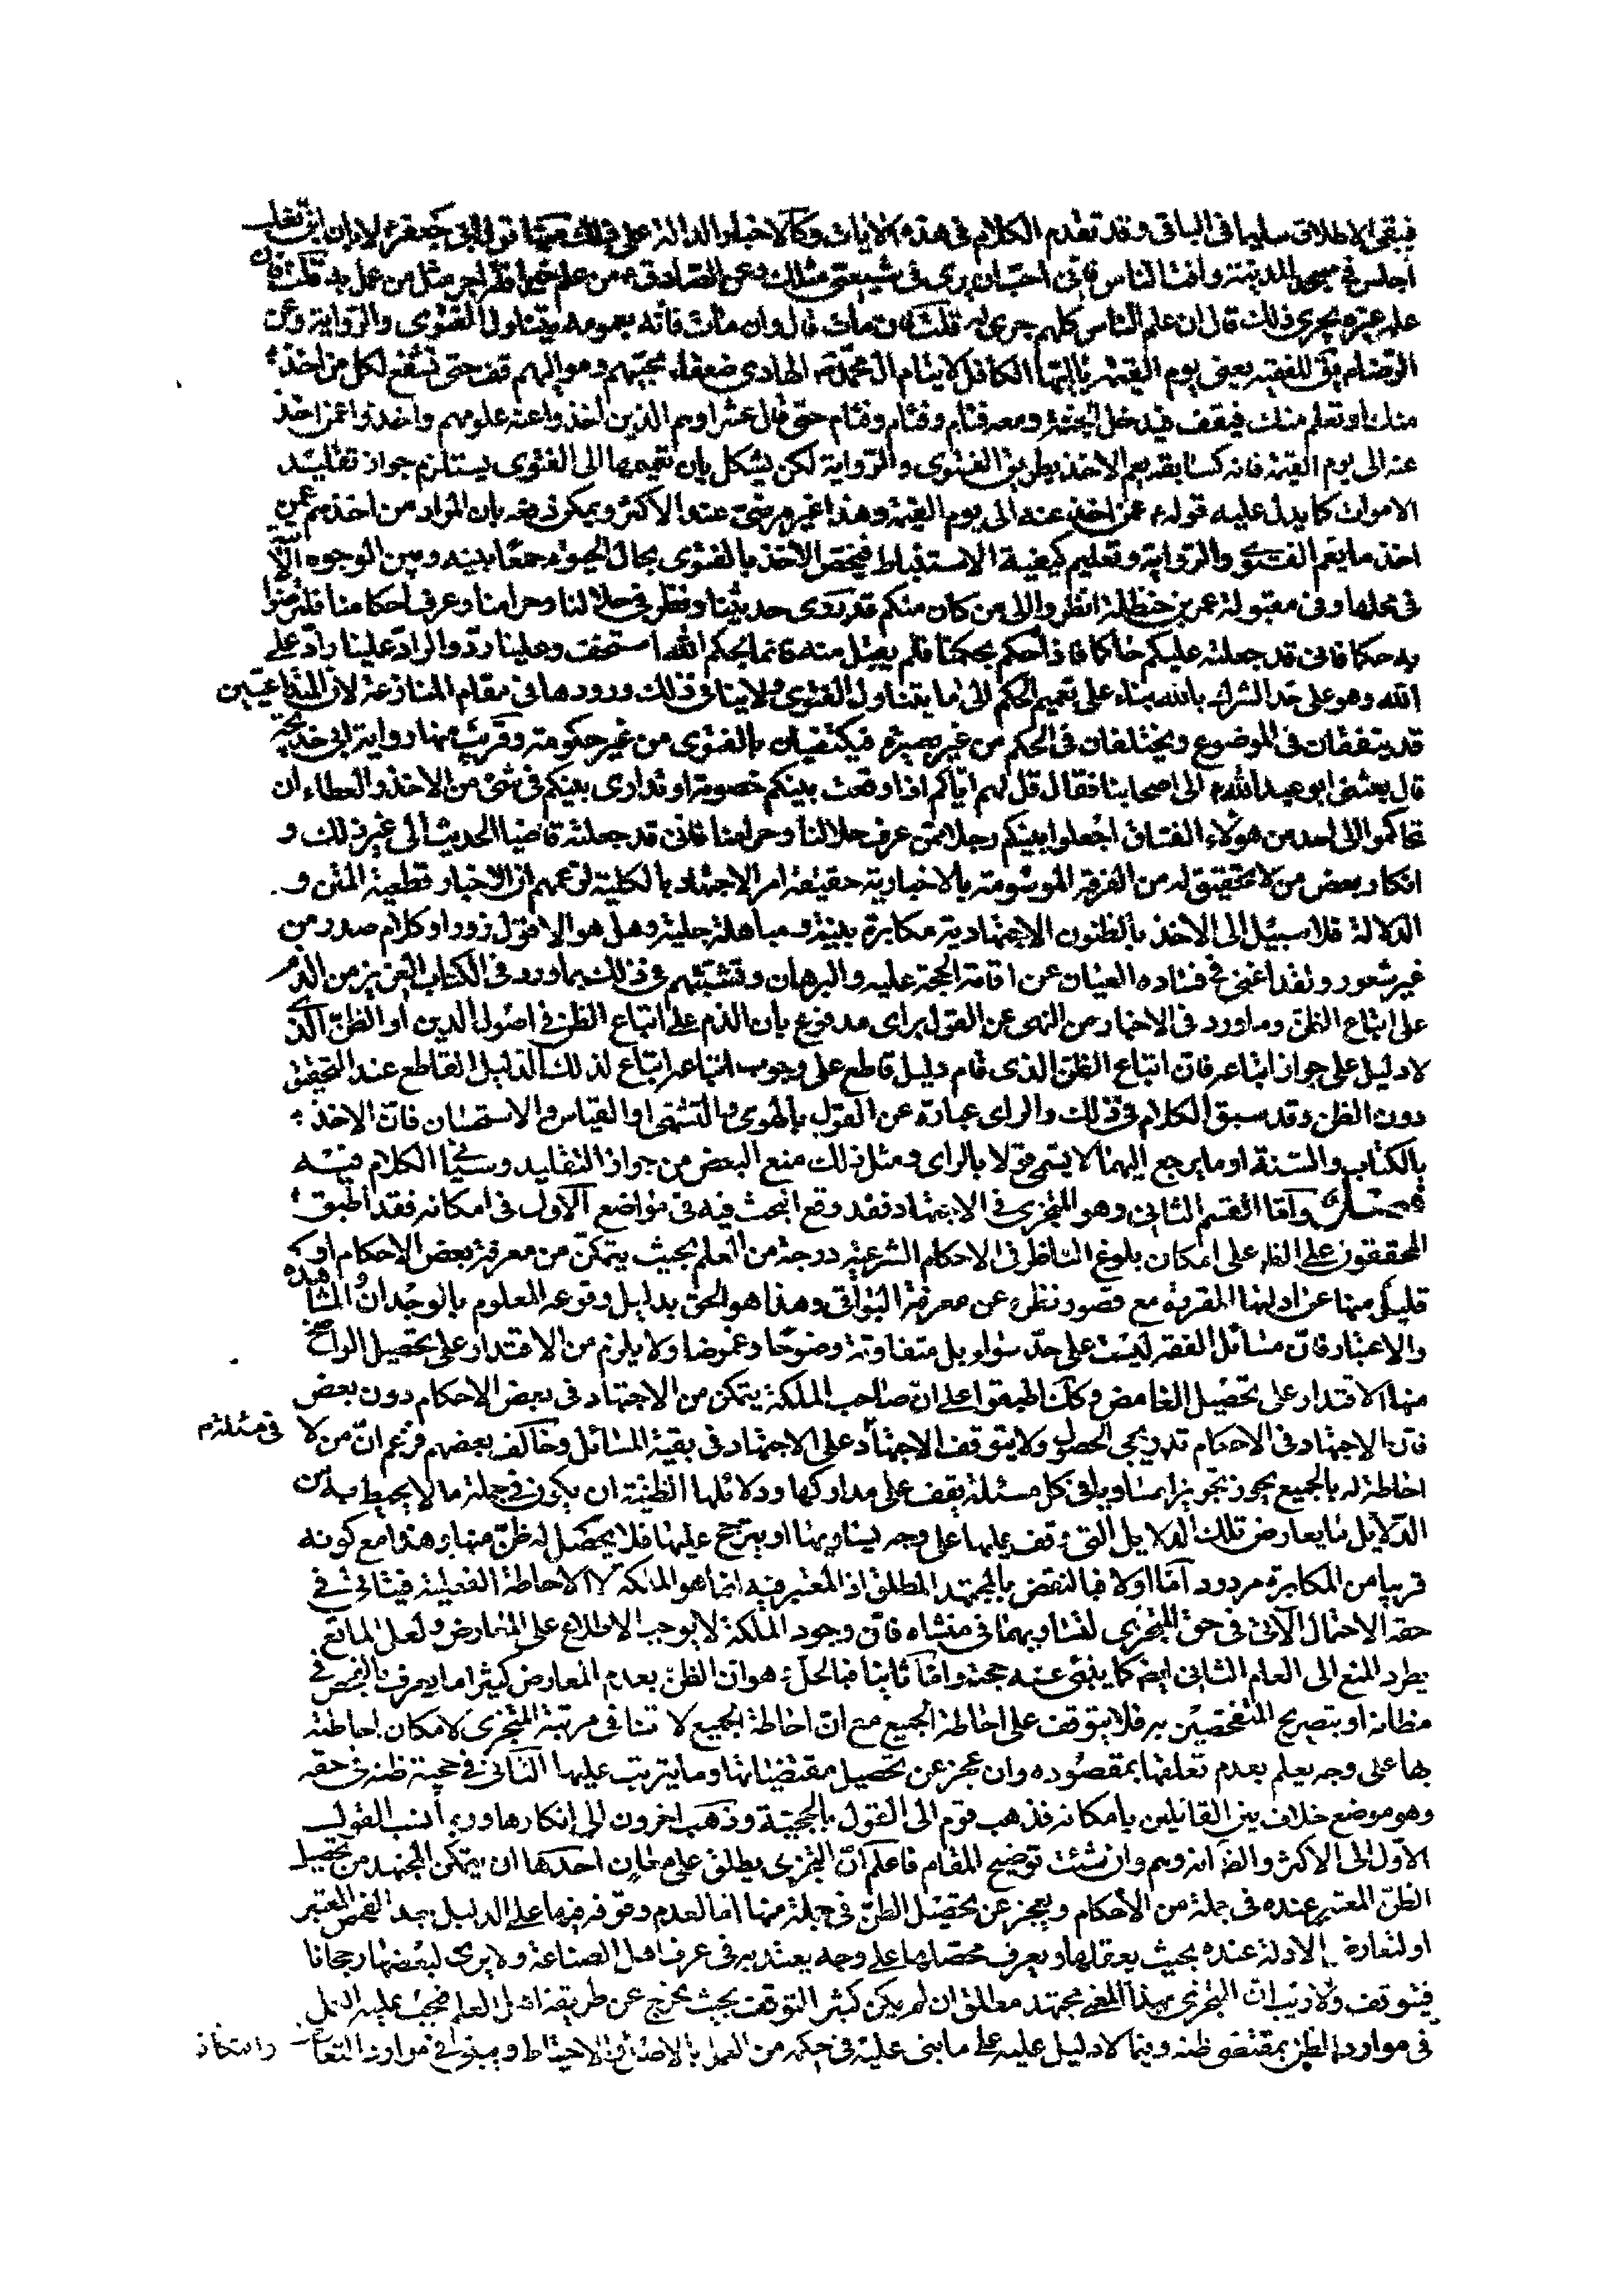 فيبقى الاطلاق سليما فى الباقى وقد تقدم الكلام فى هذه الايات وكالاخبار الدالة على ذلك منها قوله ابى جعفر ع لابان ابن تغلب
اجلس فى مسجد المدينة وافت الناس فانى احب ان يرى فى شيعتى مثلك وعن الصادق ع من علم خيرا فله اجر مثل من عمل به قلت فان
علمه غيره يجرى ذلك قال ان علم الناس كلهم جرى له قلت فان مات قال وان مات فانه بعمومه يتناول الفتوى والرواية وعن
الرضا ع يق للفقيه يعنى يوم القيمة يا ايها الكافل لايتام ال محمد ص الهادى ضعفاء محبيهم ومواليهم قف حتى تشفع لكل من اخذ
منك او تعلم منك فيقف فيدخل الجنة ومعه فئام وفئام وفئام حتى قال عشرا وهم الذين اخذوا عنه علومهم واخذوا عمن اخذ
عنه الى يوم القيمة فانه كسابقه يعم الاخذ بطريق الفتوى والرواية لكن يشكل بان تعميمها الى الفتوى يستلزم جواز تقليد
الاموات كما يدل عليه قوله ع عمن اخذ عنه الى يوم القيمة وهذا غير مرضى عند الاكثر ويمكن دفعه بان المراد من اخذهم عمن
اخذ ما يعم الفتوى والرواية وتعليم كيفية الاستنباط فيختص الاخذ بالفتوى بحال الحيوة جمعا بينه وبين الوجوه الاتية
فى محلها وفى مقبولة عمر بن حنظلة انظروا الى من كان منكم قد روى حديثنا ونظر فى حلالنا وحرامنا وعرف احكامنا فليرضوا
به حكما فانى قد جعلته عليكم حاكما فاذا حكم بحكمنا فلم يقبل منه فانما بحكم الله استخف وعلينا رد والراد علينا راد على
الله وهو على حد الشرك بالله بناء على تعميم الحكم الى ما يتناول الفتوى ولا ينافى ذلك ورودها فى مقام المنازعة لان المتداعيين
قد يتفقان فى الموضوع ويختلفان فى الحكم من غير بصيرة فيكتفيان بالفتوى من غير حكومة وقريب منها رواية ابى خديجة
قال بعثنى ابو عبد الله ع الى اصحابنا فقال قل لهم اياكم اذا وقعت بينكم خصومة او تدارى بينكم فى شئ من الاخذ والعطاء ان
تحاكموا الى احد من هؤلاء الفساق اجعلوا بينكم رجلا ممن عرف حلالنا وحرامنا فانى قد جعلته قاضيا الحديث الى غير ذلك و
انكار بعض من لا تحقيق له من الفرقة الموسومة بالاخبارية حقيقة امر الاجتهاد بالكلية لزعمهم ان الاخبار قطعية المتن و
الدلالة فلا سبيل الى الاخذ بالظنون الاجتهادية مكابرة بينة ومباهلة جلية وهل هو الا قول زور او كلام صدر من
غير شعور ولقد اغنى فى فساده العيان عن اقامة الحجة عليه والبرهان وتشبثهم فى ذلك بما ورد فى الكتاب العزيز من الذم
على اتباع الظن وما ورد فى الاخبار من النهى عن القول براى مدفوع بان الذم على اتباع الظن فى اصول الدين او الظن الذى
لا دليل على جواز اتباعه فان اتباع الظن الذى قام دليل قاطع على وجوب اتباعه اتباع لذلك الدليل القاطع عند التحقيق
دون الظن وقد سبق الكلام فى ذلك والراى عبارة عن القول بالهوى والتشهى او القياس والاستحسان فان الاخذ
بالكتاب والسنة او ما يرجع اليهما لا يسمى قولا بالراى ومثل ذلك منع البعض من جواز التقليد وسيجئ الكلام فيه
فصل واما القسم الثانى وهو المتجزى فى الاجتهاد فقد وقع البحث فيه فى مواضع الاول فى امكانه فقد اطبق
المحققون على الظ على امكان بلوغ الناظر فى الاحكام الشرعية درجة من العلم بحيث يتمكن من معرفة بعض الاحكام او
قليلا منها عن ادلتها المقررة مع قصور نظره عن معرفة البواقى وهذا هو الحق بدليل وقوعه المعلوم بالوجدان والمشاهدة
والاعتبار فان مسائل الفقه ليست على حد سواء بل متفاوتة وضوحا وغموضا ولا يلزم من الاقتدار على تحصيل الواضح
منها الاقتدار على تحصيل الغامض وكذا اطبقوا على ان صاحب الملكة يتمكن من الاجتهاد فى بعض الاحكام دون بعض
فان الاجتهاد فى الاحكام تدريجى الحصول ولا يتوقف الاجتهاد على الاجتهاد فى بقية المسائل وخالف بعضهم فزعم ان من لا فى مسئلة م
احاطة له بالجميع يجوز تجويزا مساويا فى كل مسئلة يقف على مداركها ودلائلها الظنية ان يكون فى جملة ما لا يحيط به من
الدلايل ما يعارض تلك الدلايل التى وقف عليها على وجه يساويها او يترجح عليها فلا يحصل له ظن منها وهذا مع كونه
قريبا من المكابرة مردود اما اولا فبالنقض بالمجتهد المطلق اذ المعتبر فيه انما هو الملكة لا الاحاطة الفعلية فيتاتى فى
حقه الاحتمال الاتى فى حق المتجزى لتساويهما فى منشاه فان وجود الملكة لا يوجب الاطلاع على المعارض ولعل المانع
يطرد المنع الى العام الثانى ايضا كما ينبئ عنه حجته واما ثانيا فبالحل وهو ان الظن بعدم المعارض كثيرا ما يعرف بالفحص فى
مظانه او بتصريح المتفحصين به فلا يتوقف على احاطة الجميع مع ان احاطة الجميع لا تنافى مرتبة المتجزى لامكان احاطته
بها على وجه يعلم بعدم تعلقها بمقصوده وان عجز عن تحصيل مقتضياتها وما يترتب عليها الثانى فى حجية ظنه فى حقه
وهو موضع خلاف بين القائلين بامكانه فذهب قوم الى القول بالحجية وذهب اخرون الى انكارها وربما نسب القول
الاول الى الاكثر والظ انه وهم وان شئت توضيح المقام فاعلم ان المتجزى يطلق على معان احدها ان يتمكن المجتهد من تحصيل
الظن المعتبر عنده فى جملة من الاحكام ويعجز عن تحصيل الظن فى جملة منها اما لعدم وقوفه فيها على الدليل بعد الفحص المعتبر
او لتعارض الادلة عنده بحيث يعقلها ويعرف محصلها على وجه يعتد به فى عرف اهل الصناعة ولا يرى لبعضها رجحانا
فيتوقف ولا ريب ان المتجزى بهذا المعنى مجتهد مطلق ان لم يكن كثير التوقف بحيث يخرج عن طريقة اهل العلم فيجب عليه العمل
فى موارد الظن بمقتضى ظنه وفيما لا دليل عليه على ما بنى عليه فى حكمه من العمل بالاصل او الاحتياط ويبنى فى موارد التعارض والتكافؤ